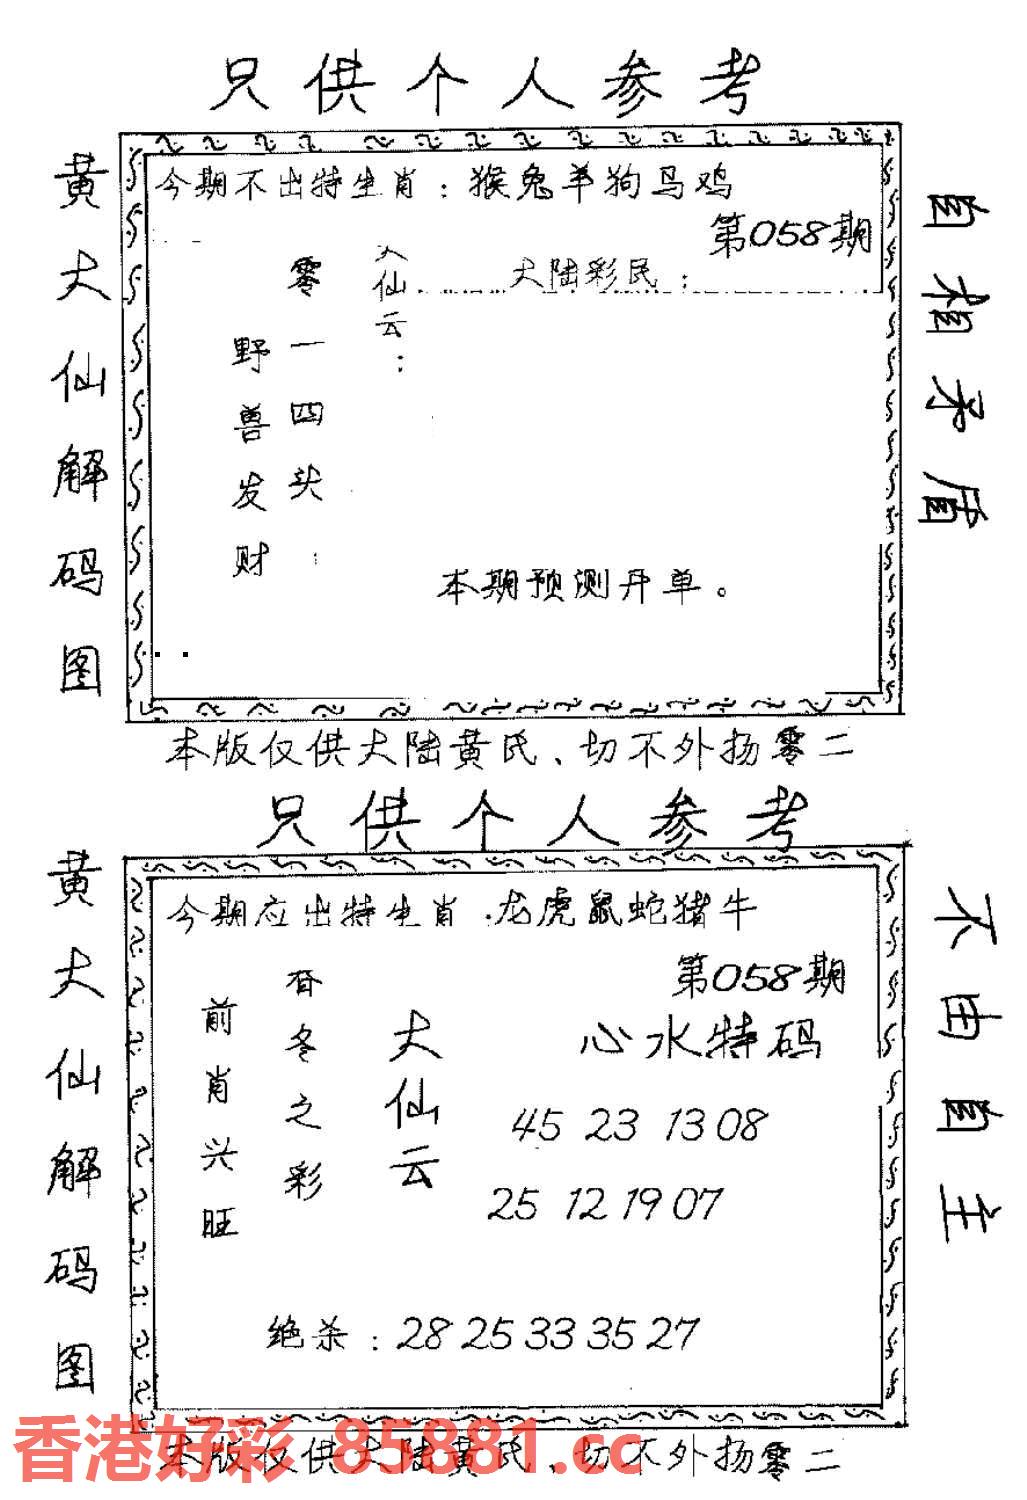 只供个人参考
黄大仙解码图
今期不出特生肖：猴兔羊狗马鸡
第058期
大陆彩民：
大仙云：
零一四头：
野兽发财
本期预测开单。
自相矛盾
本版仅供大陆黄氏、切不外扬零二
只供个人参考
黄大仙解码图
今期应出特生肖：龙虎鼠蛇猪牛
第058期
心水特码
大仙云
春冬之彩
前肖兴旺
45 23 13 08
25 12 19 07
绝杀：28 25 33 35 27
不由自主
本版仅供大陆黄氏、切不外扬零二
香港好彩 85881.cc